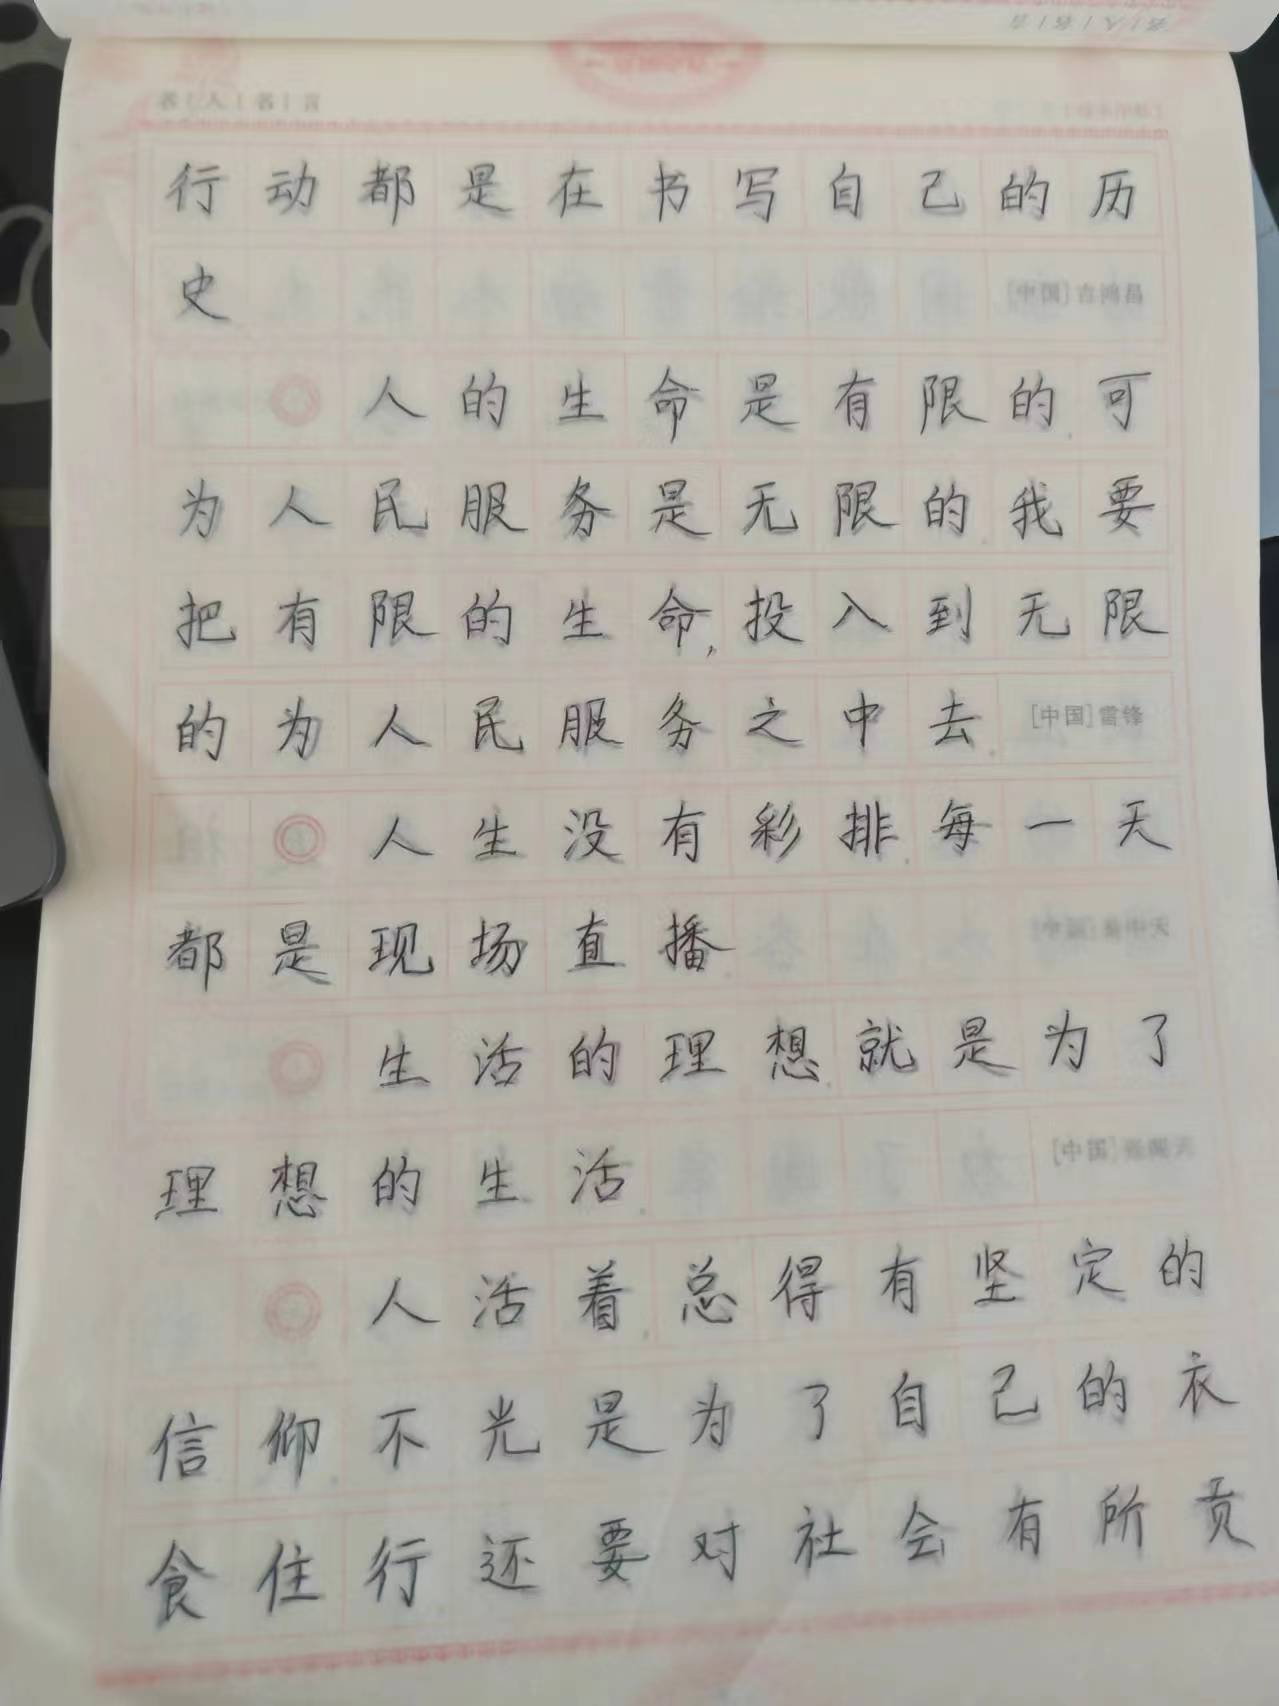 名人名言
行动都是在书写自己的历
史 [中国]吉鸿昌
人的生命是有限的,可
为人民服务是无限的,我要
把有限的生命,投入到无限
的为人民服务之中去. [中国]雷锋
人生没有彩排,每一天
都是现场直播.
生活的理想,就是为了
理想的生活. [中国]张闻天
人活着,总得有坚定的
信仰,不光是为了自己的衣
食住行,还要对社会有所贡